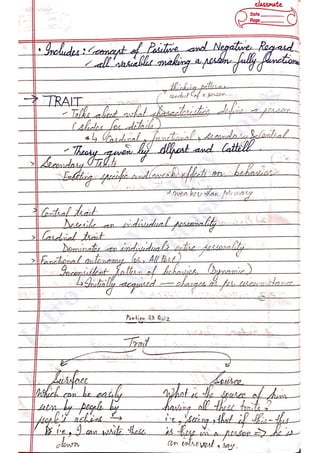 classmate
Date
Page
• Includes: - Concept of Positive and Negative Regard
- all variables making a person fully function
thinking pattern
conduct of a person
→ TRAIT
- Talks about what characteristics define a person
(slides for details)
↳ Cardinal, functional, secondary & central
- Theory given by Allport and Cattell
> Secondary Traits
- Exerting specific and weak effects on behavior
→ weaker than Primary
> Central trait
Describe an individual personality
> Cardinal trait
Dominates an individual's entire personality
> Functional autonomy (by Allport)
Inconsistent pattern of behavior (Dynamic)
↳ Initially acquired — changes as per circumstance
Quiz
Trait
Surface
Source
Which can be easily
seen by people by
people's actions
& i.e., I can write these
down
What is the source of him
having all these traits?
i.e., seeing that if this-this
is there in a person => he is
an introvert, say.